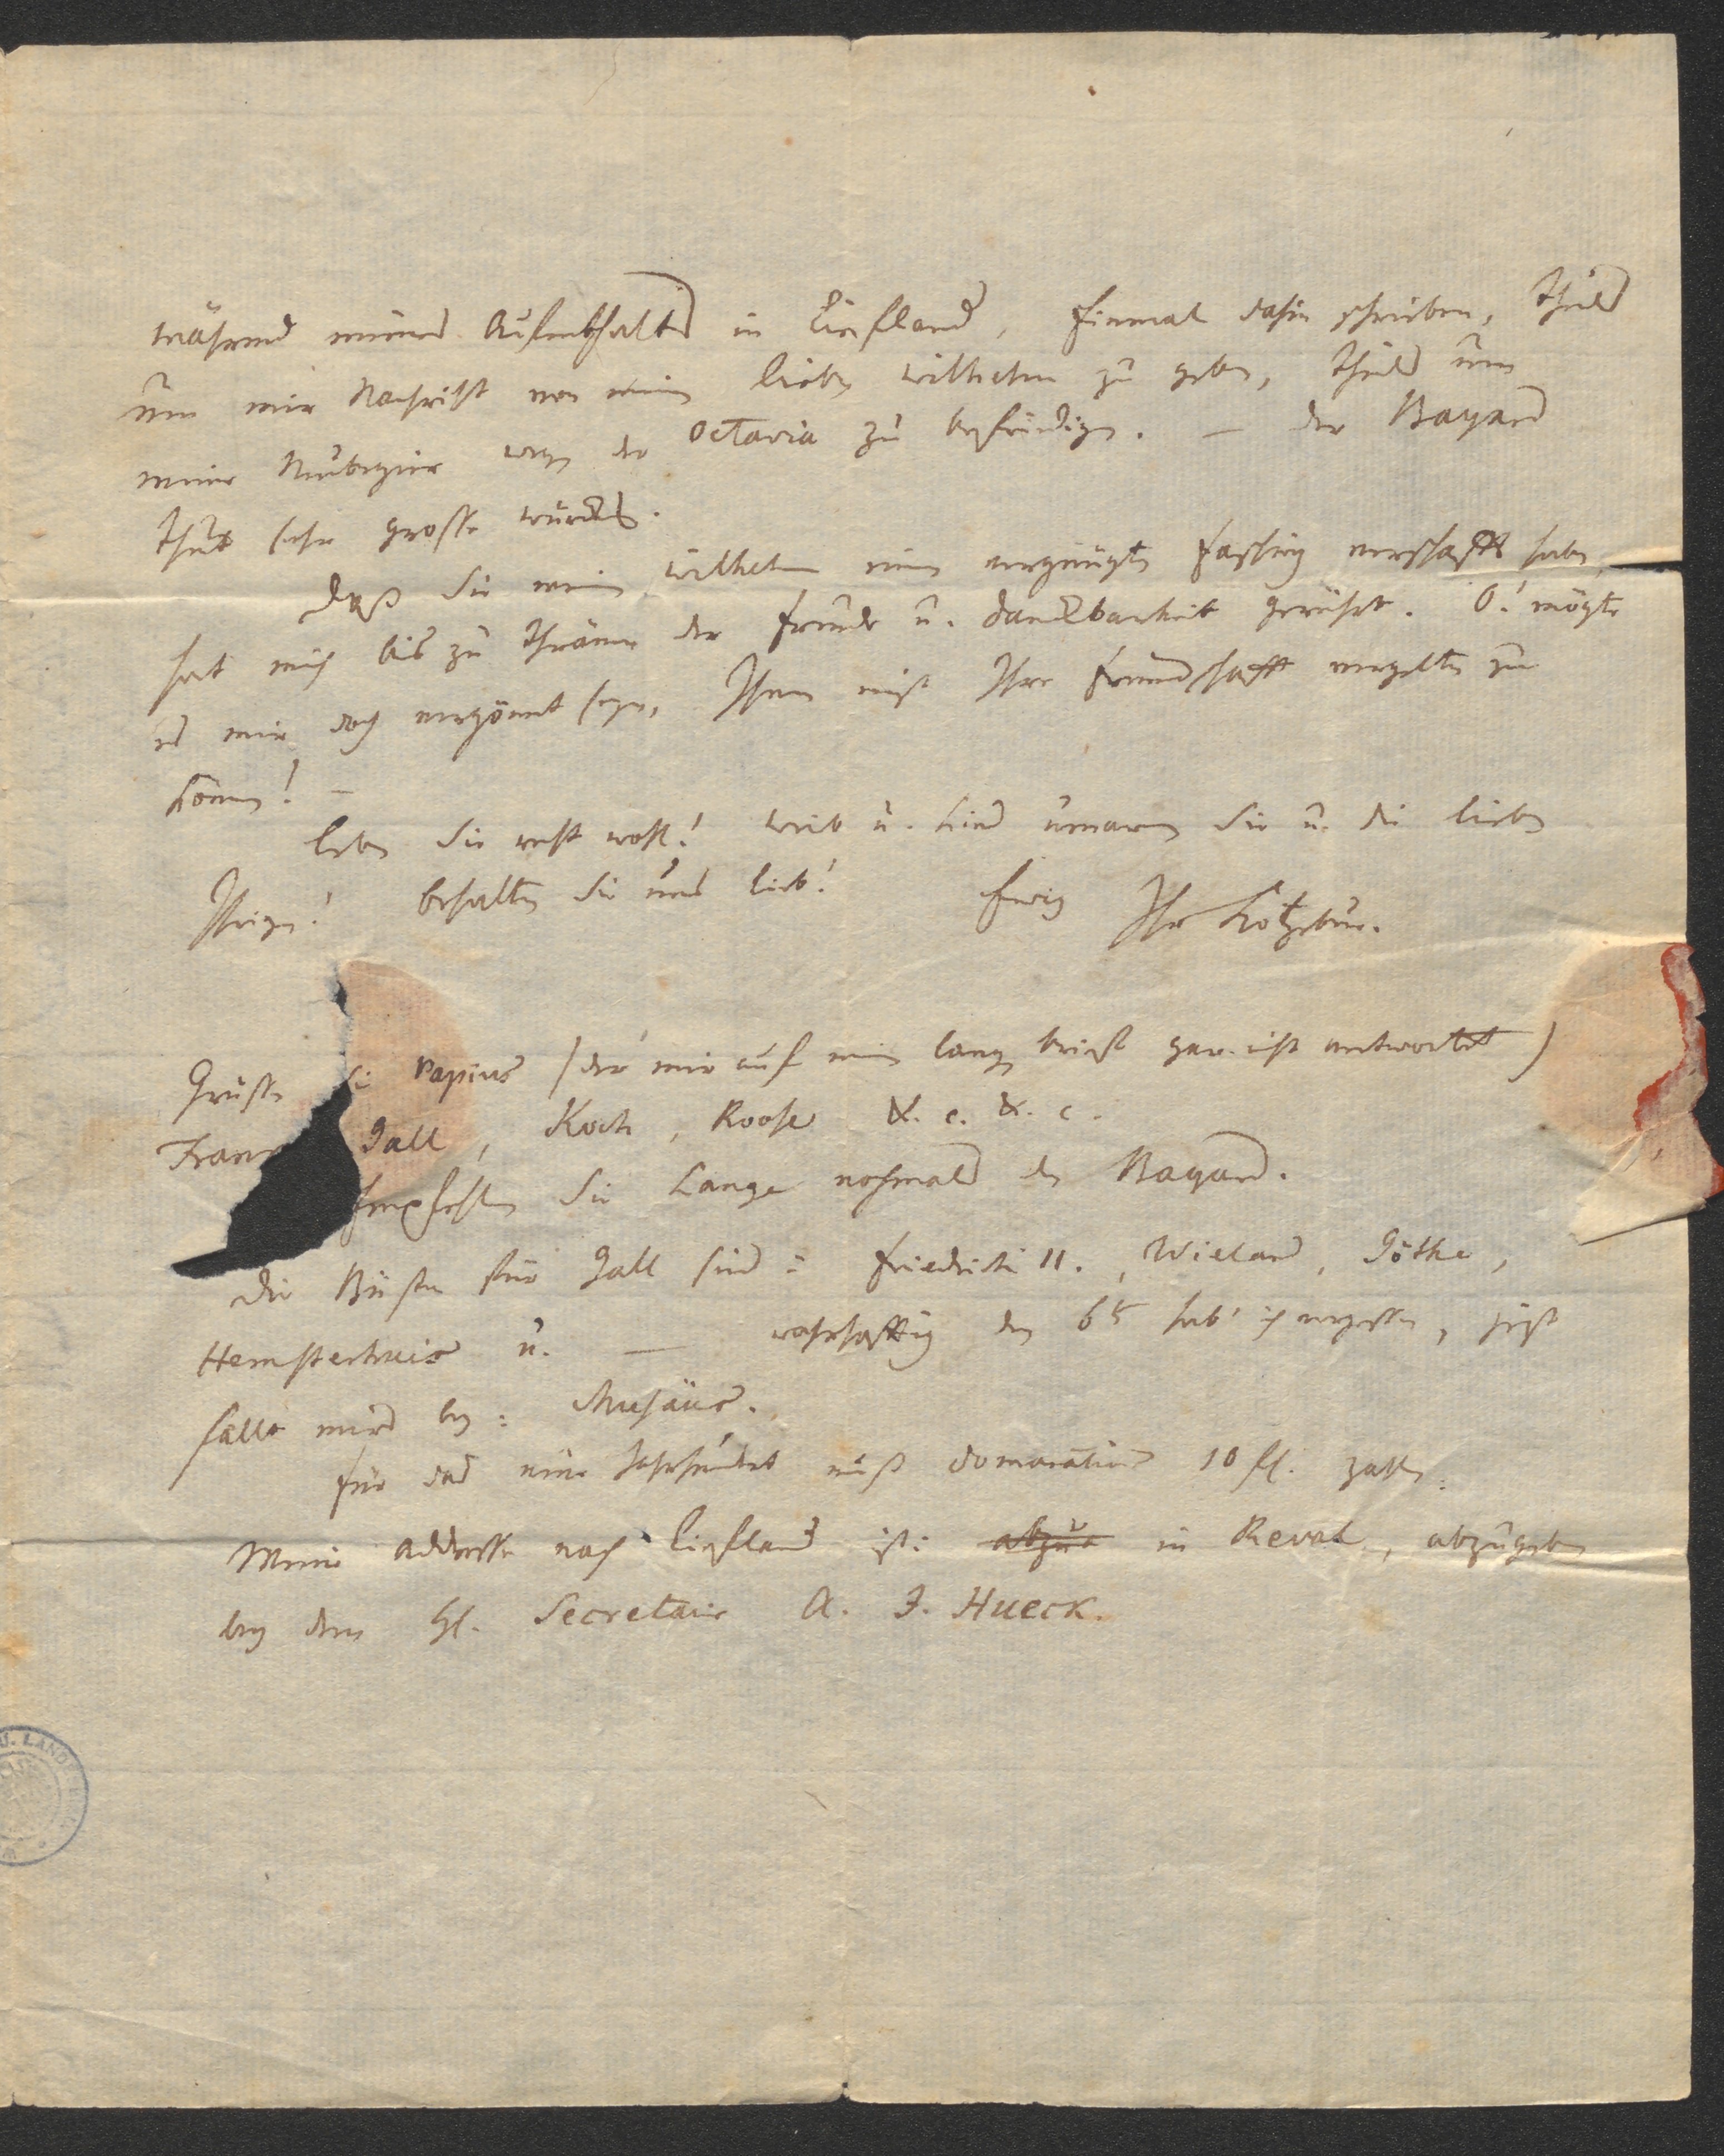 während meines Aufenthaltes in Liefland, Einmal dahin schreiben, theils
um mir Nachricht von meinem lieben Wilhelm zu geben, theils um
meine Neubegier wegen der Octavia zu befriedigen. — Der Bayard
thut sehr grosse Würckung.
Daß Sie meinem Wilhelm einen vergnügten Fasching verschafft haben,
hat mich bis zu Thränen der Freude u. Danckbarkeit gerührt. O! mögte
es mir doch vergönnt seyn, Ihnen einst Ihre Freundschafft vergelten zu
können! —
Leben Sie recht wohl! Weib u. Kind umarmen Sie u. die lieben
Ihrigen! Behalten Sie uns lieb! Ewig
Ihr Kotzebue.
Grüssen Sie Papius (der mir auf meinen langen Brief gar nicht antwortet)
Frank Gall, Koch, Roose &. c. &. c.
Empfehlen Sie Lange nochmals den Bayard.
Die Büsten für Gall sind: Friedrich II., Wieland, Göthe,
Hemsterhuis u. — wahrhafftig den 6t hab' ich vergessen, jezt
fällt mirs bey: Musäus.
Für das neue Jahrhundert muß Domaratius 10 fl. zahlen.
Meine Addresse nach Liefland ist: abzu in Reval, abzugeben
bey dem H. Secretair A. J. Hueck.
U. LAND